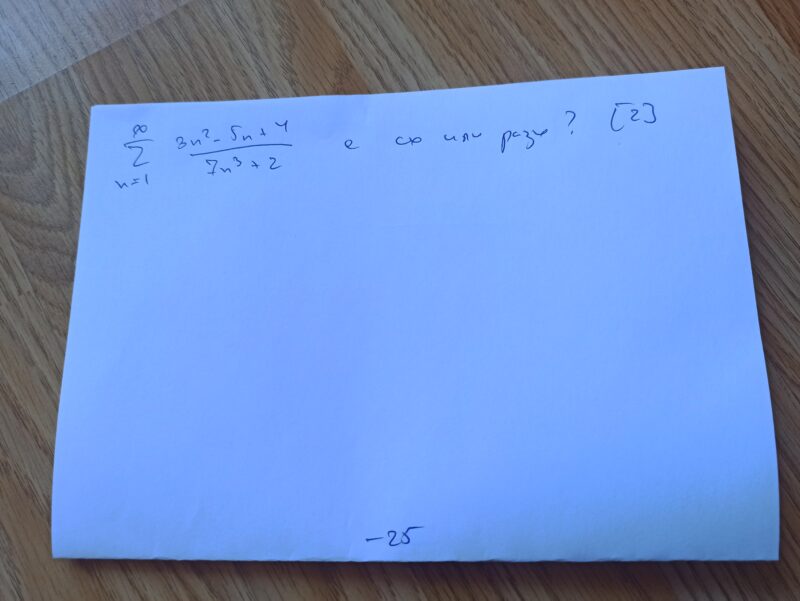 ∞
∑ 3n² - 5n + 4 / 7n³ + 2 е сх или разх? [2]
n=1
-25